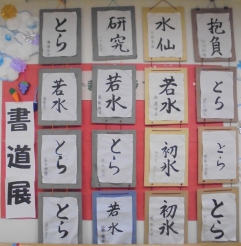 書道展
とら
研究
水仙
抱負
若水
若水
若水
とら
とら
とら
初水
とら
とら
若水
初水
とら